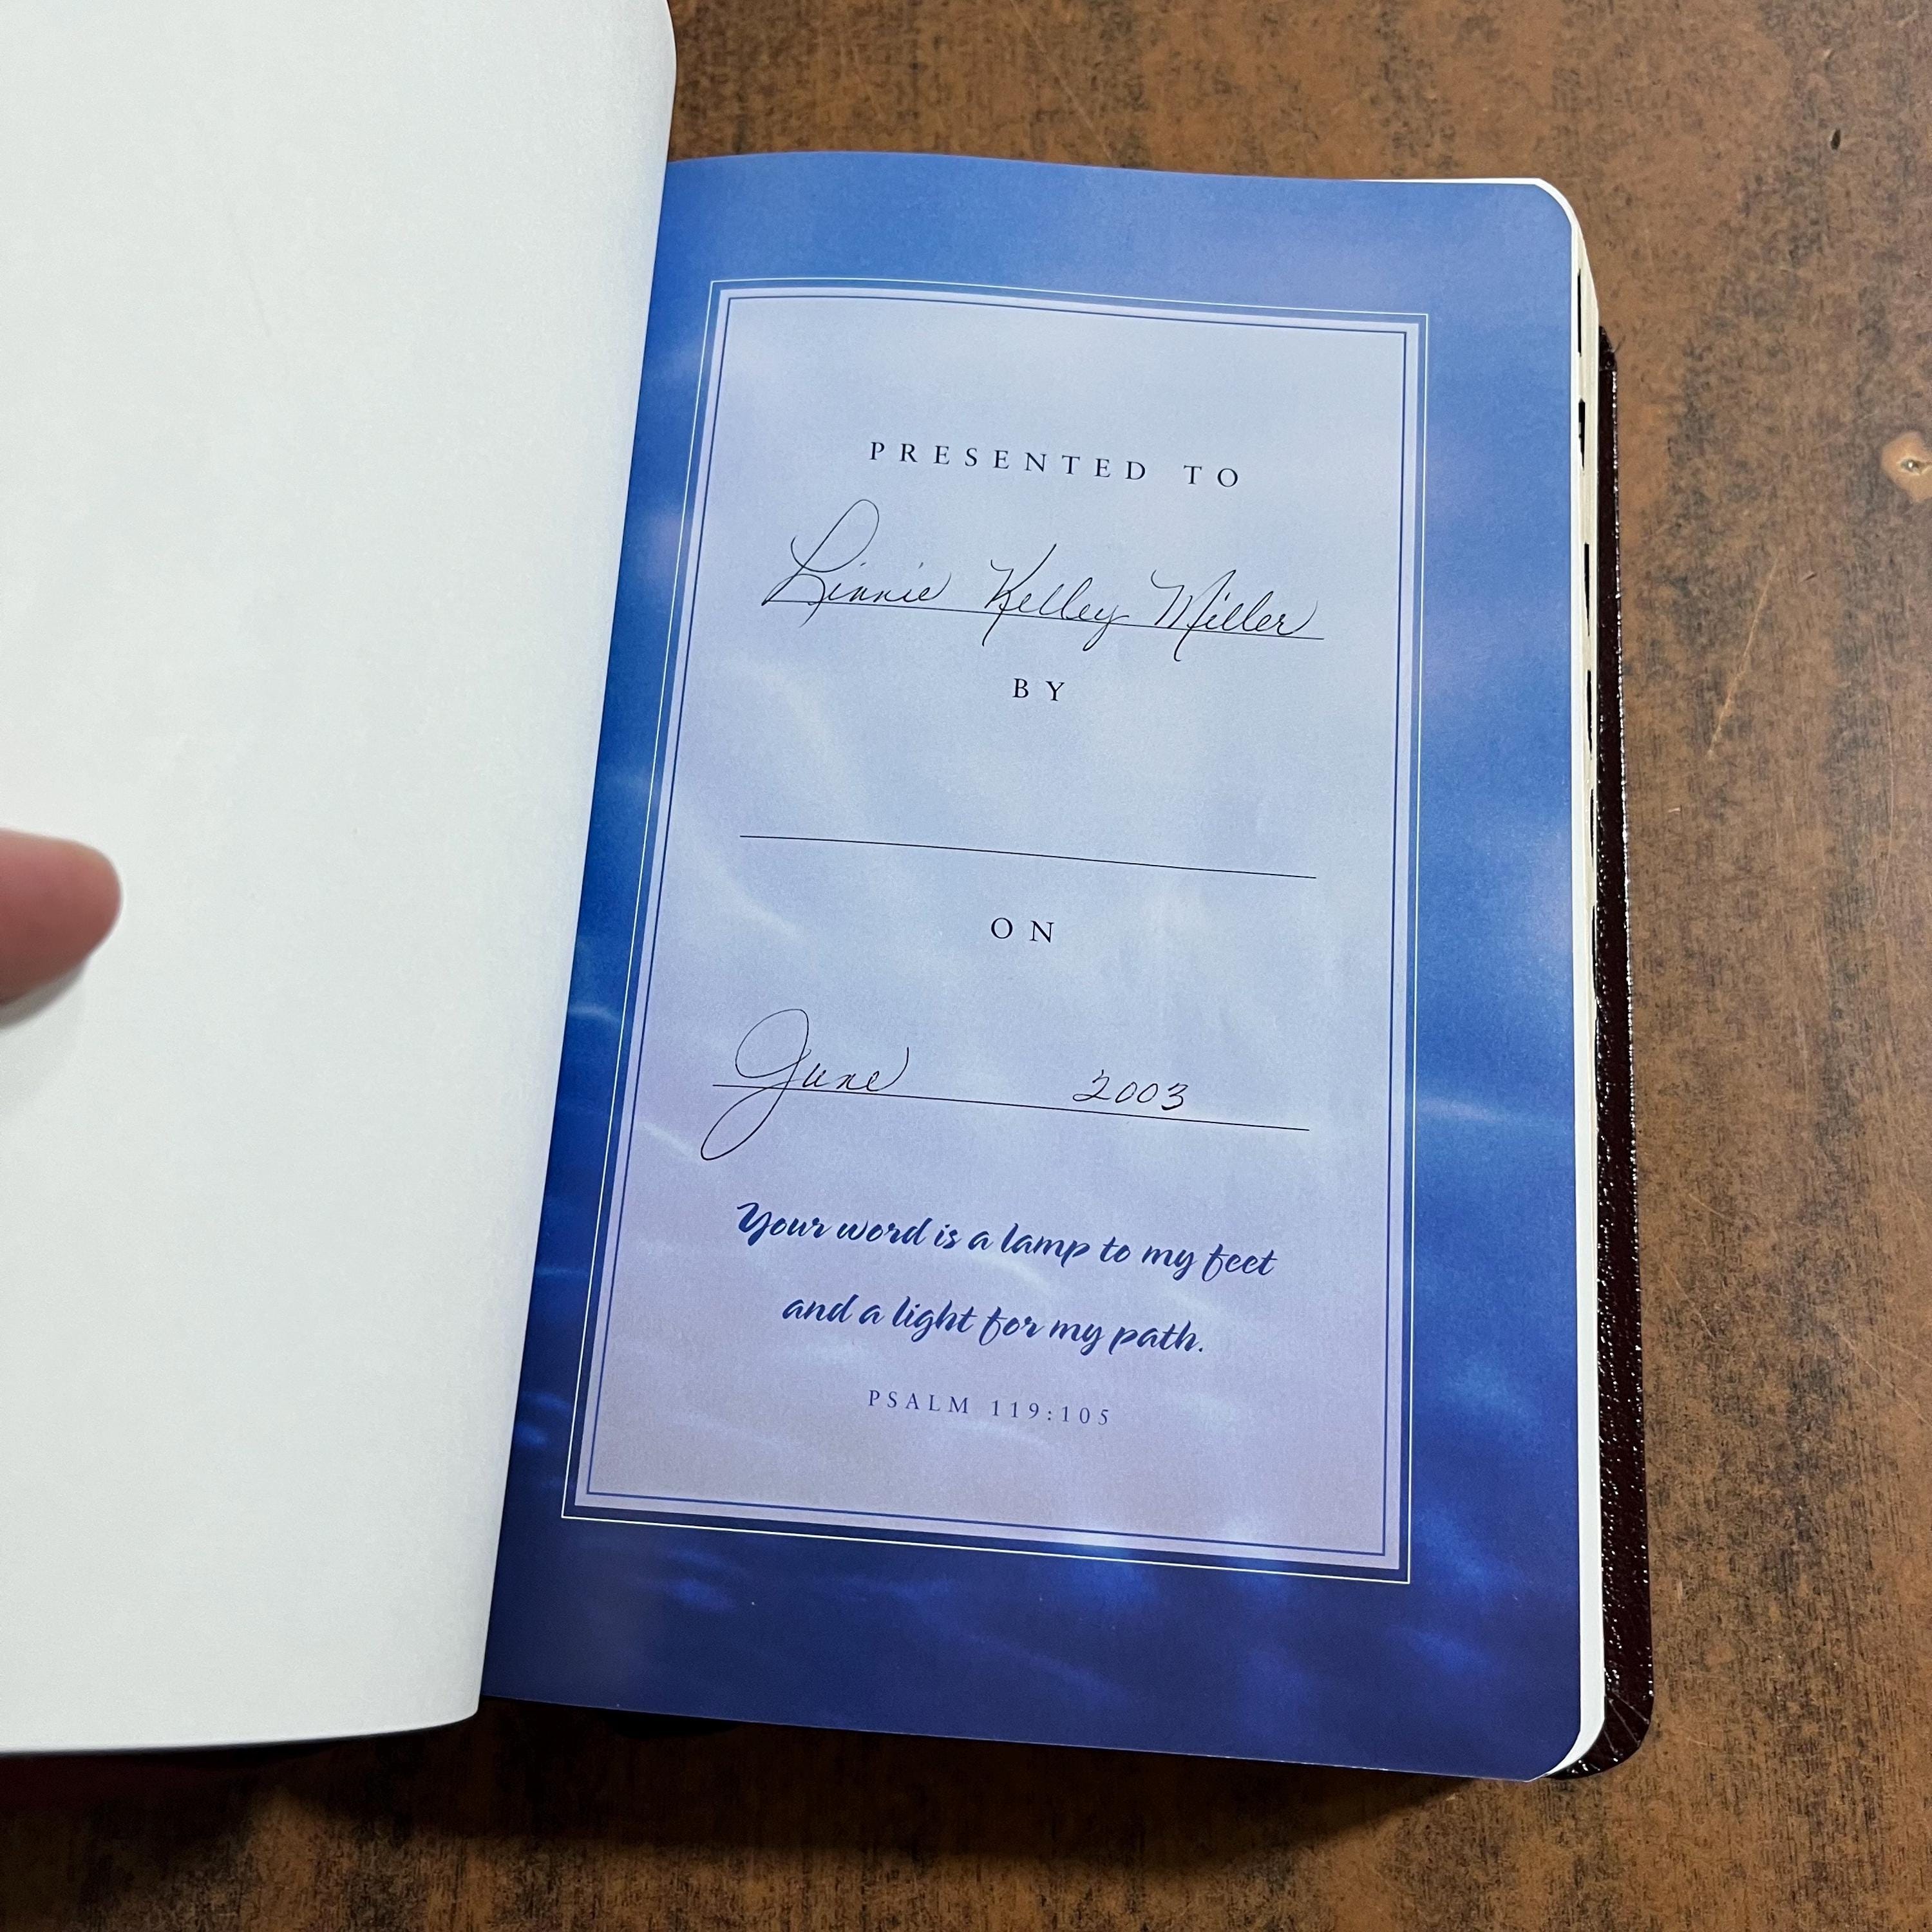 PRESENTED TO
Linnie Kelley Miller
BY
ON
June 2003
Your word is a lamp to my feet
and a light for my path.
PSALM 119:105